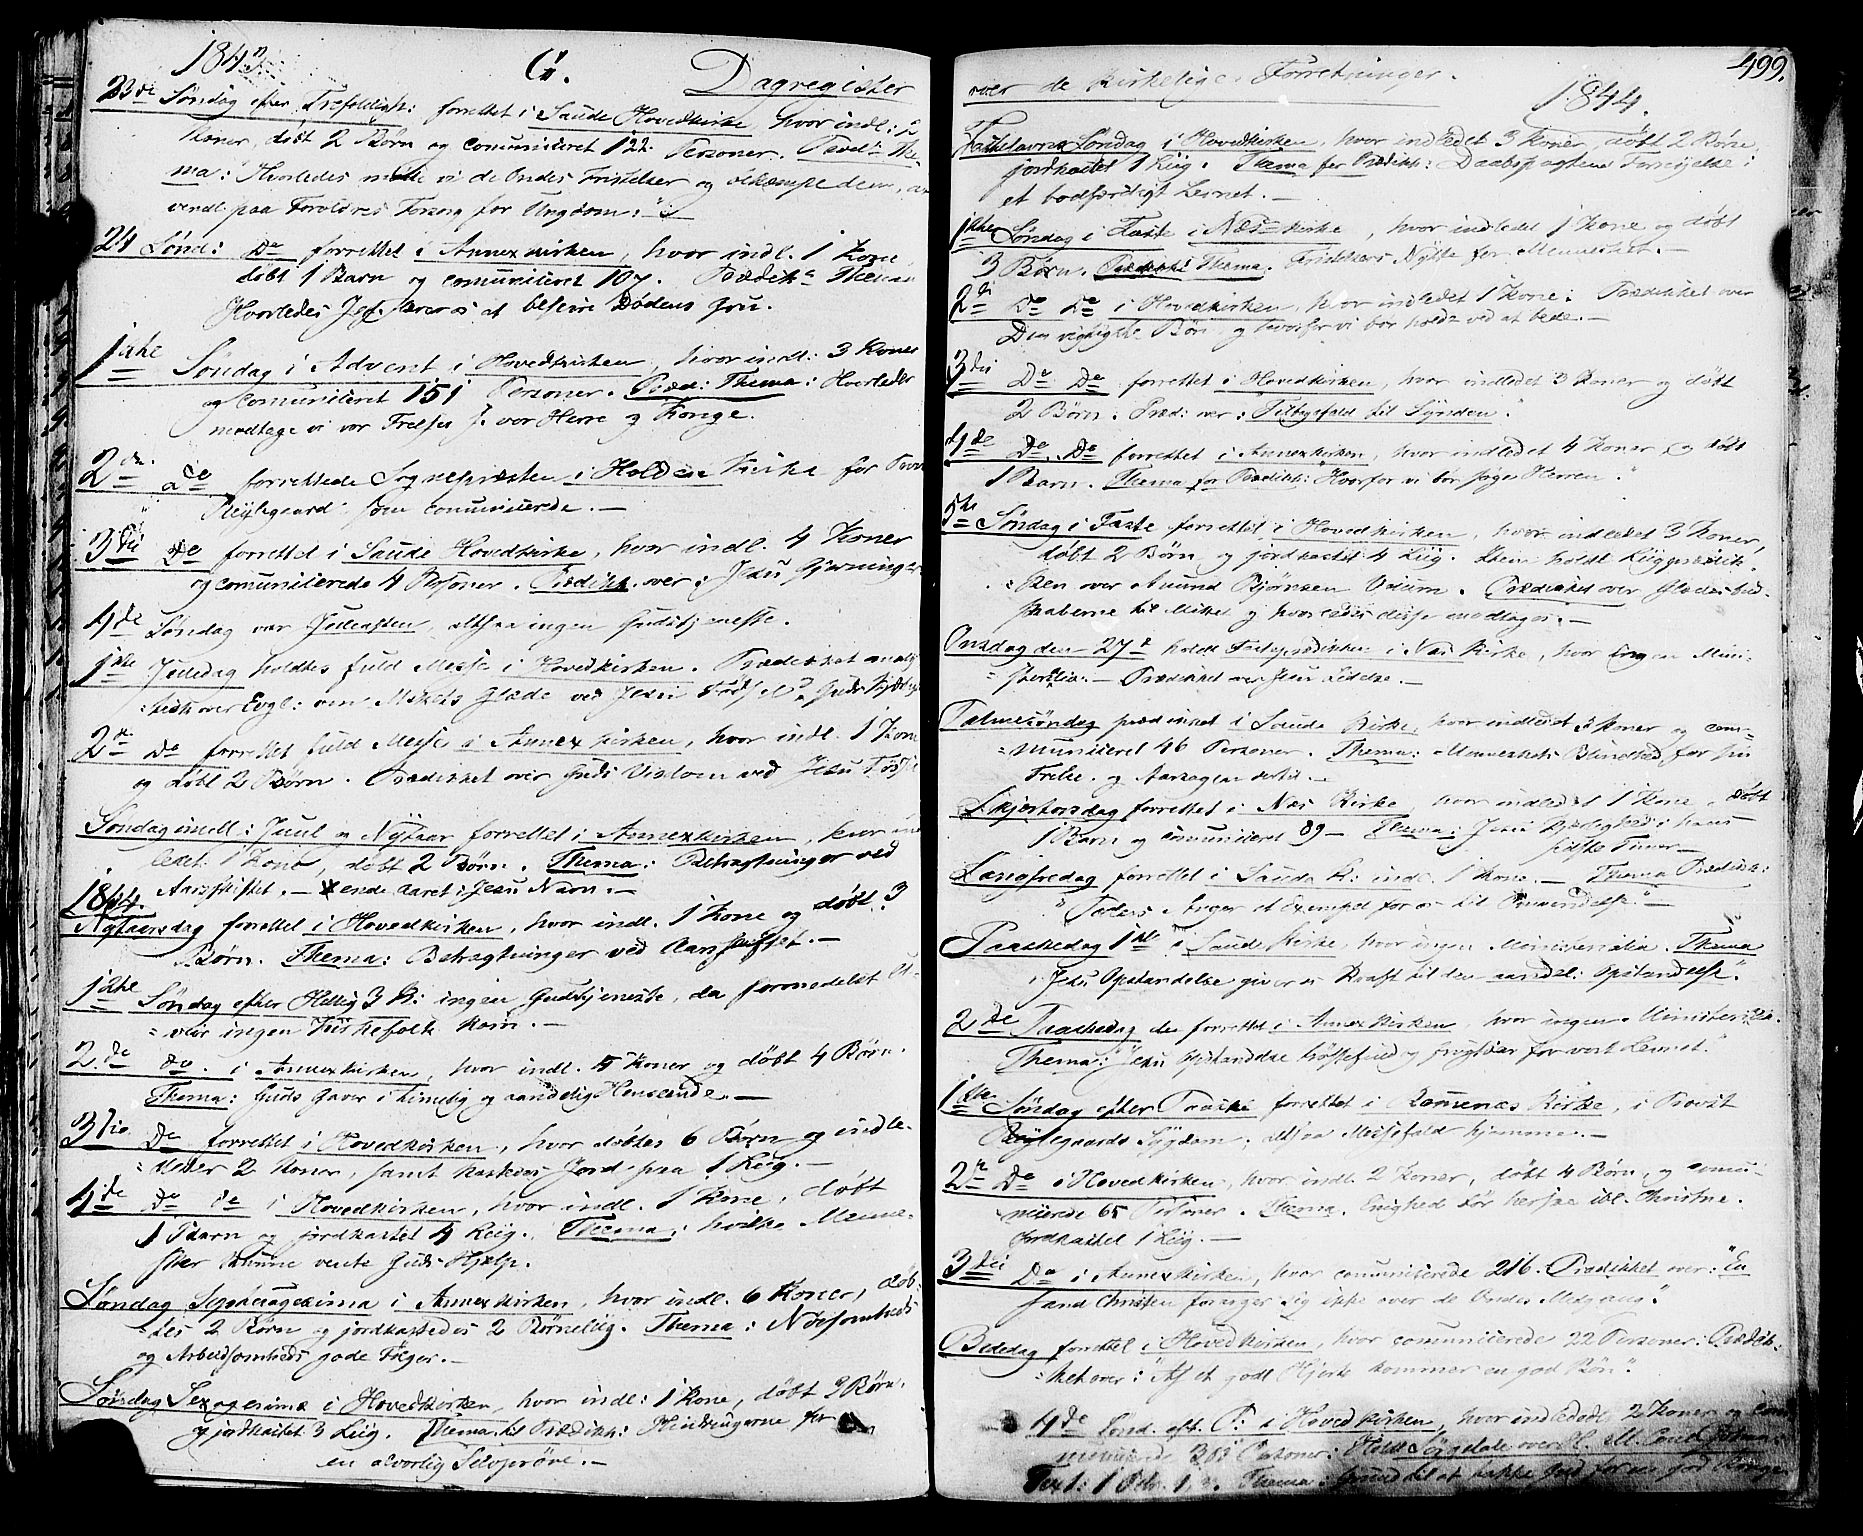 1843. G. Dagregister
23de Søndag efter Trefoldigh: forrettet i Saude Hovedkirke, hvor indl: 2
Koner, døbt 2 Børn og comuniceret 122 Personer. The-
ma: Hvorledes møde vi de Ondes Fristelser og bekæmpe dem, an-
vendt paa Forældres Forsorg for Ungdom:
24 Sønd: Do forrettet i Annexkirken, hvor indl. 1 Kone,
døbt 1 Barn og comuniceret 107. Prædik: Thema
Hvorledes Jes. lærer os at beseire Dødens Gru.
1ste Søndag i Advent i Hovedkirken, hvor indl: 3 Koner
og comuniceret 151 Personer. Præd: Thema: Hvorledes
modtage vi vor Frelser J. vor Herre og Konge.
2den do forrettede Sognepræsten i Holden Kirke for Provst
Rejlegaard som comunicerede.
3die Do forrettet i Saude Hovedkirke, hvor indl. 4 Koner
og comunicerede 4 Personer. Prædik. over: Jesu Gjerninger
4de Søndag var Juleaften, altsaa ingen Gudstjeneste.
1ste Juledag holdtes fuld Messe i Hovedkirken. Prædiket analy-
tisk over Evgl: om Mskets Glæde ved Jesu Fødsel,
2den Do forrettet fuld Messe i Annexkirken, hvor indl. 1 Kone
og døbt 2 Børn. Prædikket over Guds Viisdom ved Jesu Fødsel
Søndag imell: Juul og Nytaar forrettet i Annexkirken, hvor ind-
ledet 1 Kone, døbt 2 Børn. Thema: Betragtninger ved
Aarsskiftet. – ende aaret i Jesu Navn. –
1844.
Nytaarsdag forrettet i Hovedkirken, hvor indl. 1 Kone og døbt 3
Børn. Thema: Betragtninger ved Aarsskiftet. –
1ste Søndag efter Hellig 3 K: ingen Gudstjeneste, da formedelst U-
veir ingen Kirkefolk kom. –
2de do. i Annexkirken, hvor indl. 4 Koner og døbt 4 Børn.
Thema: Guds Gaver i timelig og aandelig Henseende. –
3die Do forrettet i Hovedkirken, hvor døbtes 6 Børn og indle-
deder 2 Koner, samt kastedes Jord paa 1 Liig. –
4de do do i Hovedkirken, hvor indl. 1 Kone, døbt
1 Barn og jordkastet 4 Liig. Thema: hvilke Menne-
sker kunne vente Guds Hjælp.
Søndag Septuagesima i Annexkirken, hvor indl. 6 Koner, døb-
tes 2 Børn og jordkastedes 2 Børnelig. Thema: Nøisomheds
og Arbeidsomheds gode Følger. –
Søndag Sexagesima i Hovedkirken, hvor indl: 1 Kone, døbt 2 Børn.
og jordkastet 3 Liig. Thema til Prædik: Hindringerne for
en alvorlig Selvprøve. –
499.
over de Kirkelige Forretninger.
1844.
Fastelavns Søndag i Hovedkirken, hvor indledet 3 Koner, døbt 2 Børn,
jordkastet 1 Liig. Thema for Prædik: Daabspagtens Fornyelse i
et bodfærdigt Levnet. –
1ste Søndag i Faste i Næs Kirke, hvor indledet 1 Kone og døbt
3 Børn. Thema. Fristelsers Nytte for Mennesket. –
2de Do Do i Hovedkirken, hvor indledet 1 Kone: Prædikket over
Den vigtigste Bøn, og hvorfor vi bør holde ved at bede. –
3die Do Do forrettet i Hovedkirken, hvor indledet 3 Koner og døbt
2 Børn. Præd: over: Tilbagefald til Synden."
4de Do. Do. forrettet i Annexkirken, hvor indledet 4 Koner og døbt
1 Barn. Thema for Prædik: Hvorfor vi bør søge Herren."
5te Søndag i Faste forrettet i Hovedkirken, hvor indledet 3 Koner,
døbt 2 Børn og jordkastet 4 Liig. Item holdt Liigprædik-
ken over Anund Bjørnsen. Prædiket over Glædesbud-
skaberne til Msket og hvorledes disse modtages. –
Onsdag den 27de holdt Fasteprædiken i Næs Kirke, hvor ingen Mini-
sterialia. – Prædikket over Jesu Lidelse. –
Palmesøndag prædikket i Saude Kirke, hvor indledet 3 Koner og com-
municeret 46 Personer. Thema: Menneskets Blindhed for sin
Frelse. og Aarsagen dertil. –
Skjærtorsdag forrettet i Næs Kirke, hvor indledet 1 Kone, døbt
1 Barn og comuniceret 89 – Thema: Jesu Kjærlighed i hans
sidste Timer –
Langfredag forrettet i Saude K: indl. 1 Kone. – Thema Prædik:
" Peders Anger et Exempel for os til Omvendelse" –
Paaskedag 1ste i Saude Kirke, hvor ingen Ministerialia. Thema
Jesu Opstandelse giver os Kraft til den aandel: Opstandelse."
2den Paaskedag do forrettet i Annexkirken, hvor ingen Ministerialia.
Thema: "Jesu Opstandelse trøstefuld og frugtbar for vort Levnet."
1ste Søndag efter Paaske forrettet i Romenæs Kirke, i Provst
Rejlegaards Sygdom, altsaa Messefald hjemme. –
2den Do i Hovedkirken, hvor indl. 2 Koner, døbt 4 Børn, og comu-
nicerede 65 Personer. Thema. Enighed bør herske ibl. Christne.
Jordkastet 1 Liig. –
3die Do i Annexkirken, hvor comunicerede 216. Prædikket over: "En
sand Christen forarger sig ikke over de Ondes Medgang."
Bededag forrettet i Hovedkirken, hvor comunicerede 22 Personer: Prædik-
ket over: "Af et godt Hjerte kommer en god Bøn".
4de Sønd. eft. P: i Hovedkirken, hvor indledet 2 Koner og com-
municerede 303 Personer: Holdt Sørgetale over
Text: 1 Petr. 1, 3. Thema: Grund til at takke Gud for en god Konge